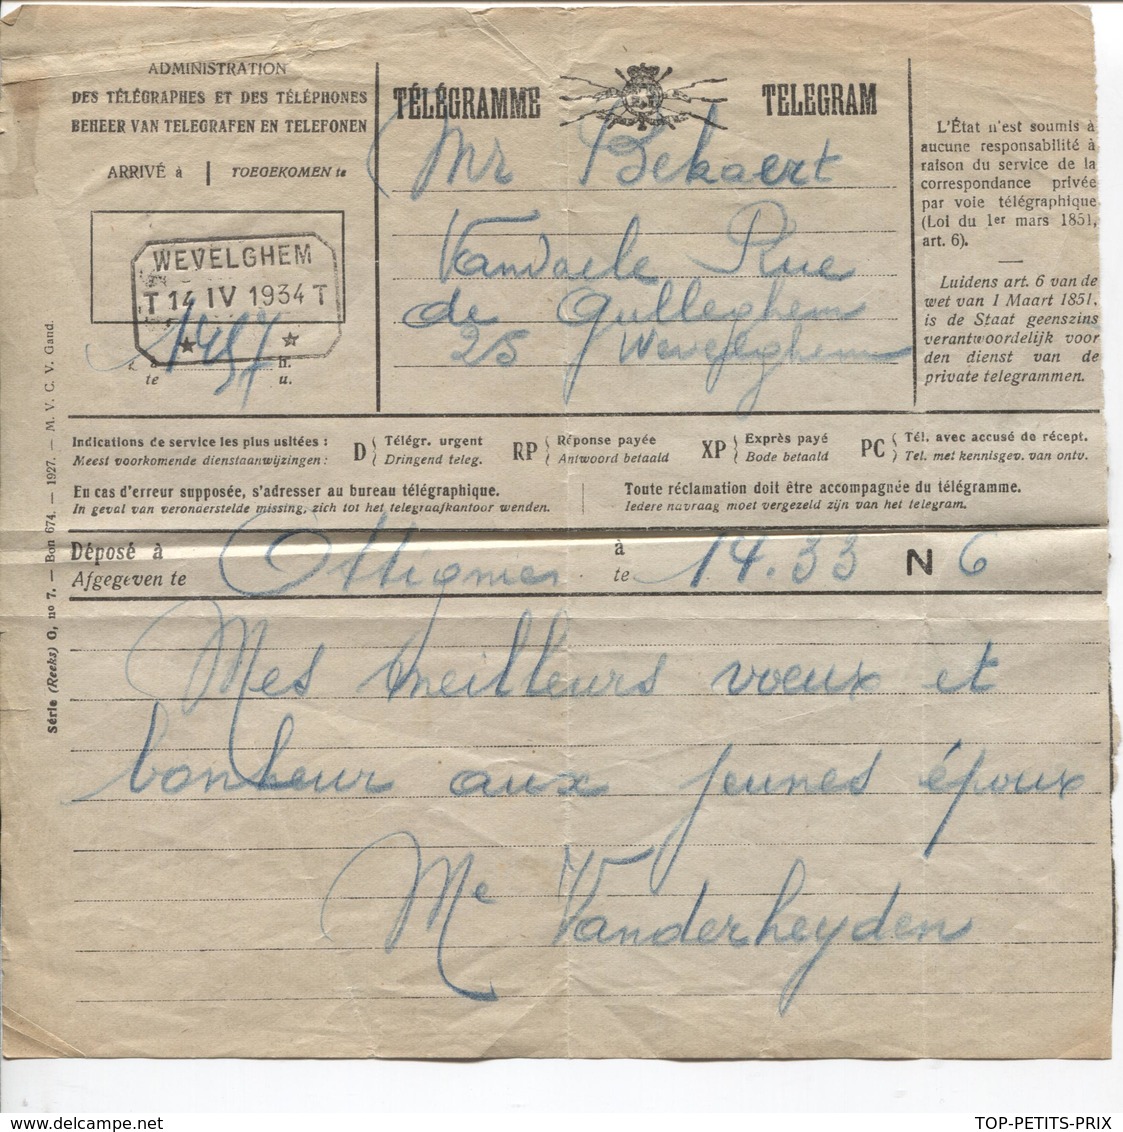 ADMINISTRATION
DES TÉLÉGRAPHES ET DES TÉLÉPHONES
BEHEER VAN TELEGRAFEN EN TELEFONEN
ARRIVÉ à | TOEGEKOMEN te
WEVELGHEM
T 14 IV 1934 T
à h.
te u.
TÉLÉGRAMME TELEGRAM
Mr Bekaert
Vandaele Rue
de Gulleghem
25 Wevelghem
L'État n'est soumis à
aucune responsabilité à
raison du service de la
correspondance privée
par voie télégraphique
(Loi du 1er mars 1851,
art. 6).
Luidens art. 6 van de
wet van 1 Maart 1851,
is de Staat geenszins
verantwoordelijk voor
den dienst van de
private telegrammen.
Indications de service les plus usitées :
Meest voorkomende dienstaanwijzingen :
D { Télégr. urgent
Dringend teleg.
RP { Réponse payée
Antwoord betaald
XP { Exprès payé
Bode betaald
PC { Tél. avec accusé de récept.
Tel. met kennisgev. van ontv.
En cas d'erreur supposée, s'adresser au bureau télégraphique.
In geval van veronderstelde missing, zich tot het telegraafkantoor wenden.
Toute réclamation doit être accompagnée du télégramme.
Iedere navraag moet vergezeld zijn van het telegram.
Déposé à Ottignies à 14.33 N 6
Afgegeven te te
Mes meilleurs voeux et
bonheur aux jeunes époux
Me Vanderheyden
Série (Reeks) O, no 7. — Bon 674. — 1927. — M. V. C. V. Gand.
TOP-PETITS-PRIX